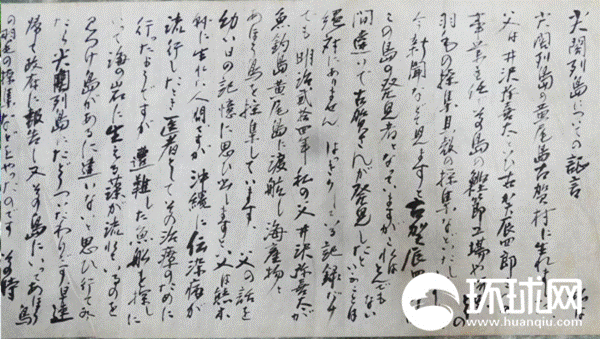 尖閣列島についての証言
尖閣列島の黄尾島古賀村に生れ
父は井沢弥喜太といひ古賀辰四郎
事業主任でその島の鰹節工場や
羽毛の採集貝殻の採集などし
今新聞など見ますと古賀辰四
この島の発見者となっていますがこれはとんでもない
間違いで古賀さんが発見したということは
絶対にありません はっきりしている記録だけ
でも明治弐拾四年 私の父井沢弥喜太が
魚釣島黄尾島に渡航し海産物
あほう鳥を採集しています 父の話を
幼い日の記憶に思ひ出しますと 父は熊本
に生れた人間ですが沖縄に伝染病が
流行したとき医者としてその治療のために
行ったようですが遭難した魚船を探しに
いって海の岩に生える藻が流れているのを
見つけ島があるに違いないと思ひ行ってみ
たら尖閣列島だったといわれます
帰って政府に報告し又その島にいってあほう鳥
の羽毛の採集などしたようです その時
环球网
www.huanqiu.com